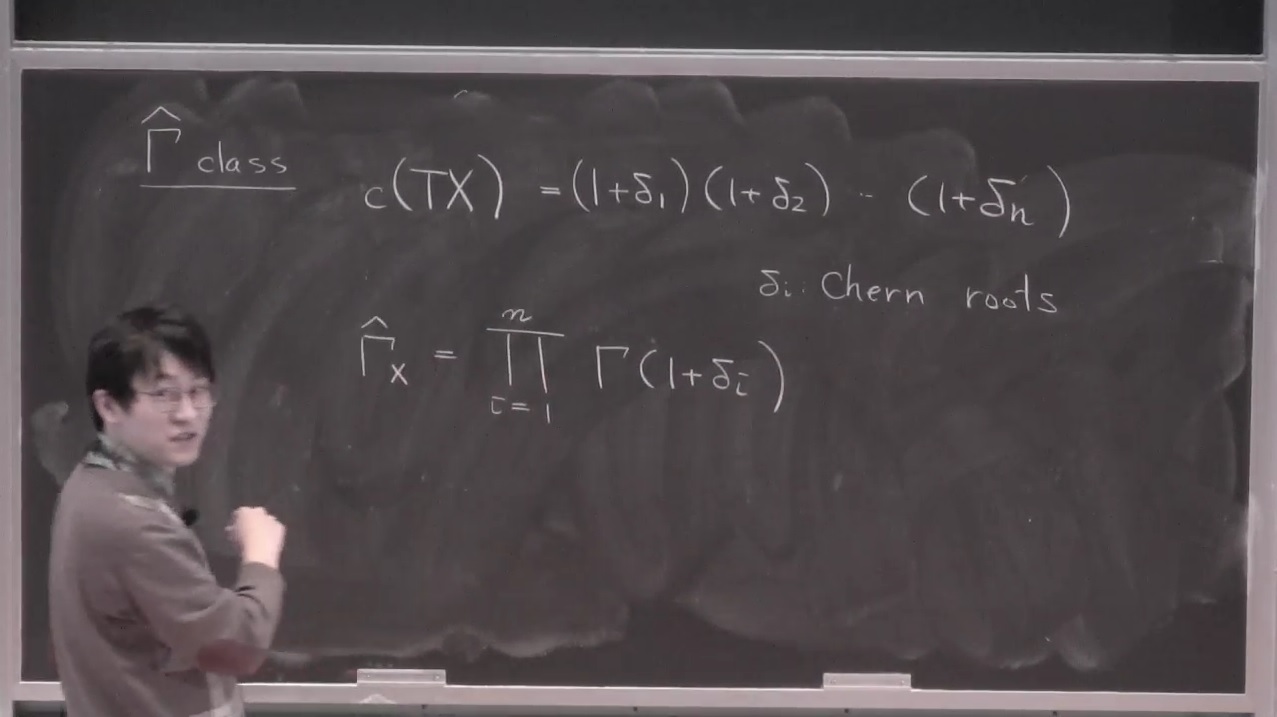 Γ̂ class c(TX) = (1+δ₁)(1+δ₂) ‑ ‑ (1+δₙ)
δᵢ: Chern roots
Γ̂_X = ∏_{i=1}^{n} Γ(1+δᵢ)